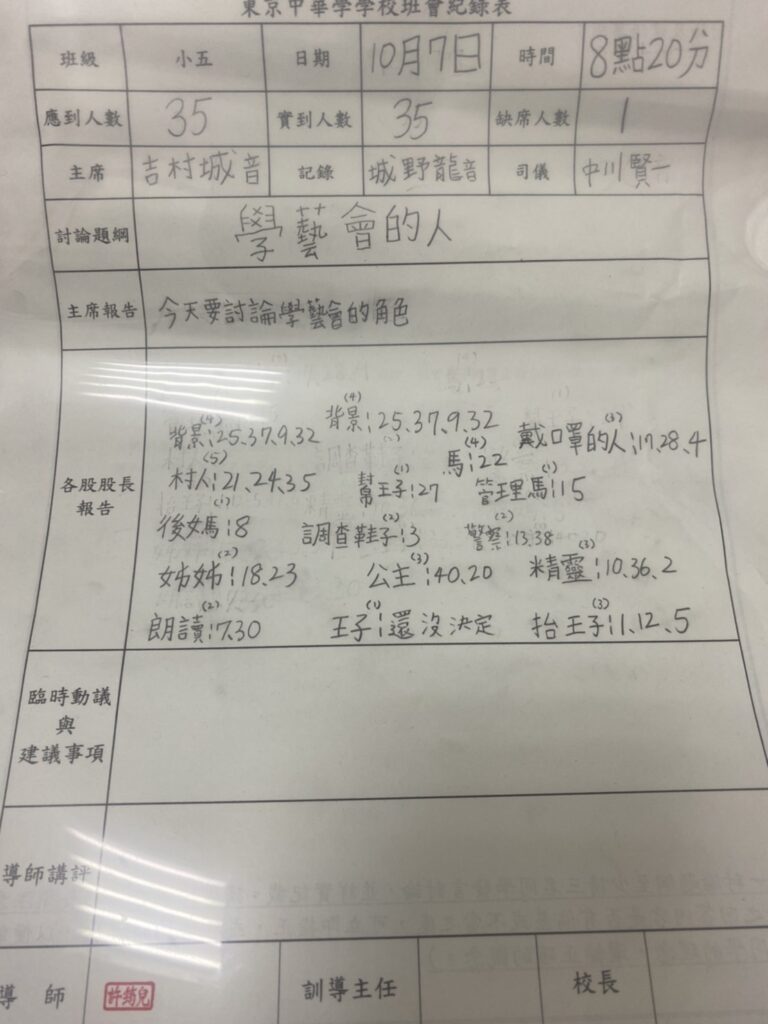 東京中華學學校班會紀錄表
班級 小五 日期 10月7日 時間 8點20分
應到人數 35 實到人數 35 缺席人數 1
主席 吉村城音 記錄 城野龍音 司儀 中川賢一
討論題綱 學藝會的人
主席報告 今天要討論學藝會的角色
各股股長報告
(4) (4) (3)
背景:25.37.9.32 背景:25.37.9.32 戴口罩的人:17、28、4
(5) (4)
村人:21、24、35 馬:22
(1) (1)
幫王子:27 管理馬:15
(1) (2) (2)
後媽:8 調查鞋子:3 警察:13.38
(2) (3) (3)
姊姊:18.23 公主:40.20 精靈:10.36.2
(2) (1) (3)
朗讀:7.30 王子:還沒決定 抬王子:1、12、5
臨時動議
與
建議事項
導師講評
導師 許筠兒 訓導主任 校長